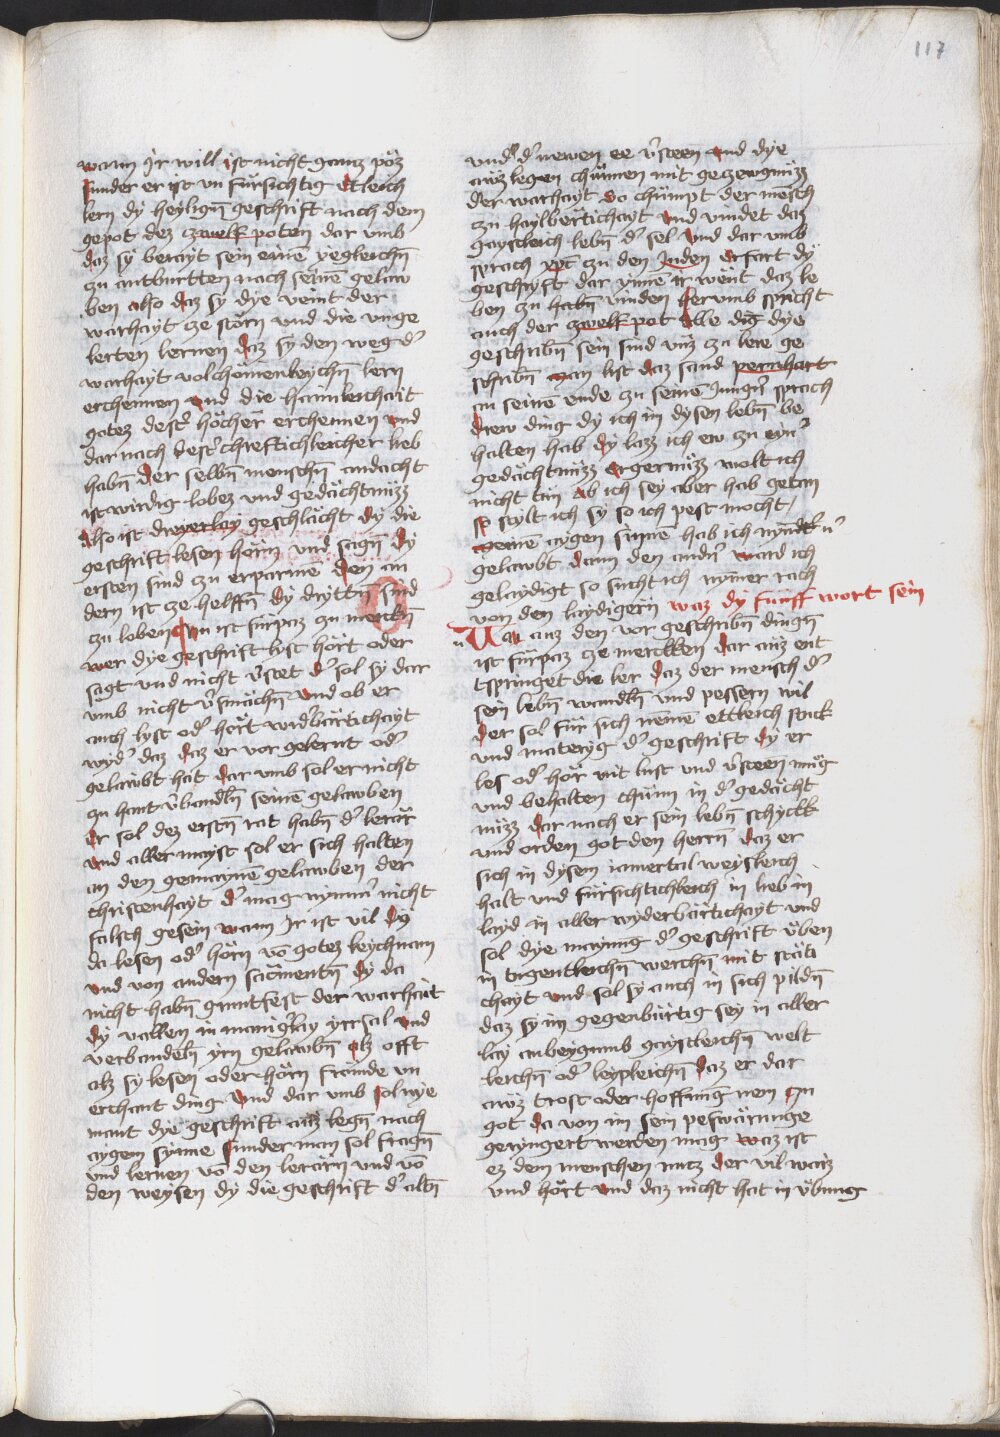 117
wann Jr will ist nicht gancz pöz
sunder er ist vn fürsichtig etleich
lern dy heyligñ geschrift nach dem
gepot dez czwelf poten dar vmb
daz sy berayt sein einē yegleichñ
zu antburtten nach seinē gelaw
ben also daz sy dye veint der
warhayt ze störn vnd die vnge
lerten lernen daz sy den weg d'
warhayt volchömenleychñ lern
erchennen vnd die haimleichait
gotez dest' höcher erchennen vnd
dar nach dest' chreftichleicher lieb
habñ der selbñ menschñ andacht
ist wirdig lobez vnd gedächtnüzz
Also ist dreyerlay geschlächt dy die
geschrift lesen hörnt vnd sagñ dy
ersten sind zu erparmē den an
dern ist ze helffñ dy dryttñ sind
zu loben Nu ist fürpaz zu merckñ
wer dye geschrift lyst hört oder
sagt vnd nicht v'stet d' sol sy dar
vmb nicht v'smächñ vnd ob er
auch lyst od' hört wid'bärtichayt
wyd' daz daz er vor gelernt od'
gelawbt hat dar vmb sol er nicht
zu hant v'bandlñ seinē gelawben
Er sol dez erstñ rat habñ d' lerär
vnd aller mayst sol er sich halten
an den gemaynē gelawben der
christenhayt d' mag nymm' nicht
falsch gesein wann Jr ist vil dy
da lesen od' hörn vō gotez leychnam
vnd von andern sacmentñ dy da
nicht habñ gruntfest der warhait
dy vallen in manig'lay yrrsal vnd
verbandelñ yrn gelawbñ alz offt
alz sy lesen oder hörn främde vn
erchant ding vnd dar vmb sol nye
mant dye geschrift auz legñ nach
aygem synne sunder man sol fragñ
vnd lernen vō den lerärn vnd vō
den weysen dy die geschrift d' altñ
vnd d' newen ee v'steen vnd dye
auz legen chünnen mit geczewgnüzz
der warhayt So chümpt der mensch
zu haylbertichayt vnd vindet daz
gaystleich lebñ d' sel vnd dar vmb
sprach xp̄c zu den Juden erfart dy
geschryft dar ynnē ir wēnt daz le
ben zu habñ vinden hervmb spricht
auch der czwelf pot Alle dig dye
geschribñ sein sind vnz zu lere ge
schribñ man list daz sand pernhart
an seinē ende zu seinē Jungñ sprach
drew ding dy ich in dysen lebñ be
halten hab dy lazz ich ew zu eyn'
gedächtnüzz ergernüzz wolt ich
nicht tün Ab ich sey aber hab getan
so stylt ich sy so ich pest mocht
meinē aygen sinne hab ich nyndt' n'
gelawbt dann den andñ ward ich
gelaydigt so sucht ich nymer rach
von den laydigern waz dy fünff wort sein
Nu auz den vor geschribñ dingñ
ist fürpaz ze merkken dar auz ent
tspringet die ler daz der mensch d'
sein lebñ wandlñ vnd pessern wil
der sol für sich nemē ettleich stuck
vnd materyg d' geschrift dy er
les od' hör mit lust vnd v'steen müg
vnd behalten chünn in d' gedächt
nüzz dar nach er sein lebñ schykk
vnd orden got dem herrñ daz er
sich in dysem iamertal weysleich
halt vnd fürsichtichleich in lieb in
layd in aller wyderbärtichayt vnd
sol dye maynung d' geschrift üben
in tugentleichñ werchñ mit stäti
chayt vnd sol sy auch in sich pildñ
daz sy im gegenbürtig sey in aller
lay anbeygung gaystleichñ welt
leichñ od' leypleichñ daz er dar
auz trost oder hoffnüg nem zu
got da von im sein peswärunge
geryngert werden mag waz ist
ez dem menschen nucz der vil waiz
vnd hört vnd daz nicht hat in übung